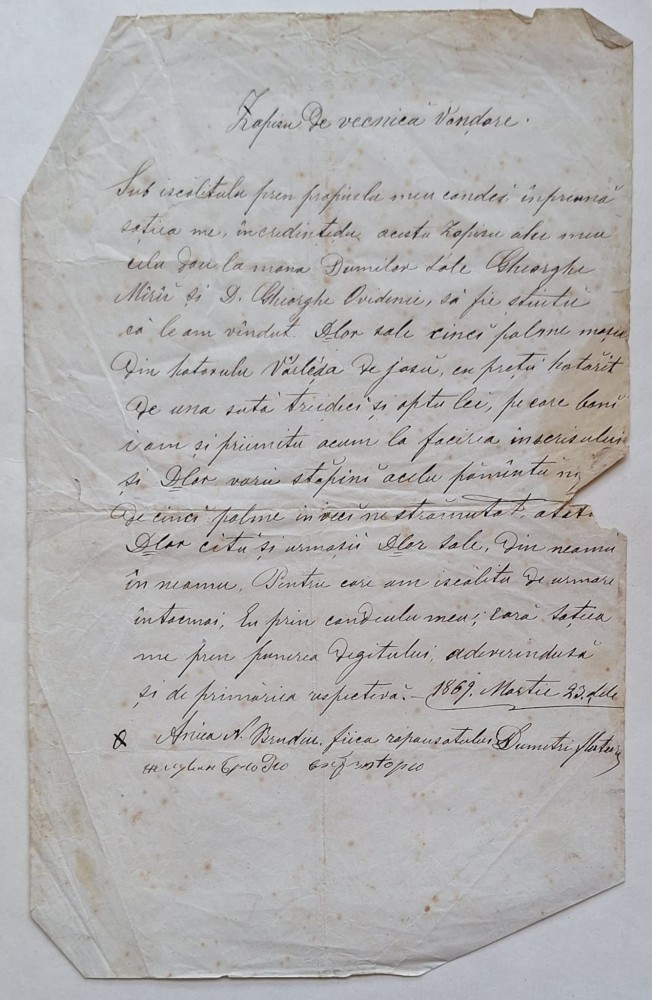 Zapisu De vecnica Vanzare.
Sub iscolitulu pren propiula meu condei inpreună
soțiea me, încredințedu acestu Zapisu alu meu
celu dau la mana Dumilor Sale Gheorghe
și D. Gheorghe Ovidenie, să fie știutu
că leam vîndut Dlor sale cinci palme moșie
Din hotarulu Vârleșa De josu, cu prețu hotărît
De una sută treideci și optu lei, pe care bani
iam și priimitu acum la facirea inscrisului
și Dlor voru stăpîni acelu pămîntu
De cinci palme in veci nestrămutat,
Dlor cîtu și urmașii Dlor sale, Din neamu
în neamu. Pentru care am iscălitu De urmare
întocmai, Eu prin condeiulu meu; eară soțiea
me pren punerea Degitului, adeverindusă
și de primăriea respectivă. – 1869. Martie 23. dele
Anica N. fiica rapausatului Dumitri